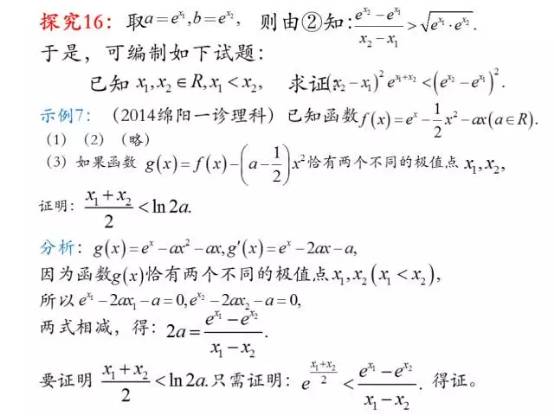 探究16：取a=e^{x₁},b=e^{x₂}, 则由②知:(e^{x₂}-e^{x₁})/(x₂-x₁)>√(e^{x₁}·e^{x₂}).
于是，可编制如下试题：
已知 x₁,x₂∈R,x₁<x₂, 求证(x₂-x₁)²e^{x₁+x₂}<(e^{x₂}-e^{x₁})².
示例7：（2014绵阳一诊理科）已知函数f(x)=e^x-1/2x²-ax(a∈R).
（1）（2）（略）
（3）如果函数 g(x)=f(x)-(a-1/2)x²恰有两个不同的极值点 x₁,x₂,
证明：(x₁+x₂)/2<ln2a.
分析：g(x)=e^x-ax²-ax,g′(x)=e^x-2ax-a,
因为函数g(x)恰有两个不同的极值点x₁,x₂(x₁<x₂),
所以e^{x₁}-2ax₁-a=0,e^{x₂}-2ax₂-a=0,
两式相减，得：2a=(e^{x₁}-e^{x₂})/(x₁-x₂).
要证明 (x₁+x₂)/2<ln2a.只需证明：e^{(x₁+x₂)/2}<(e^{x₁}-e^{x₂})/(x₁-x₂). 得证。